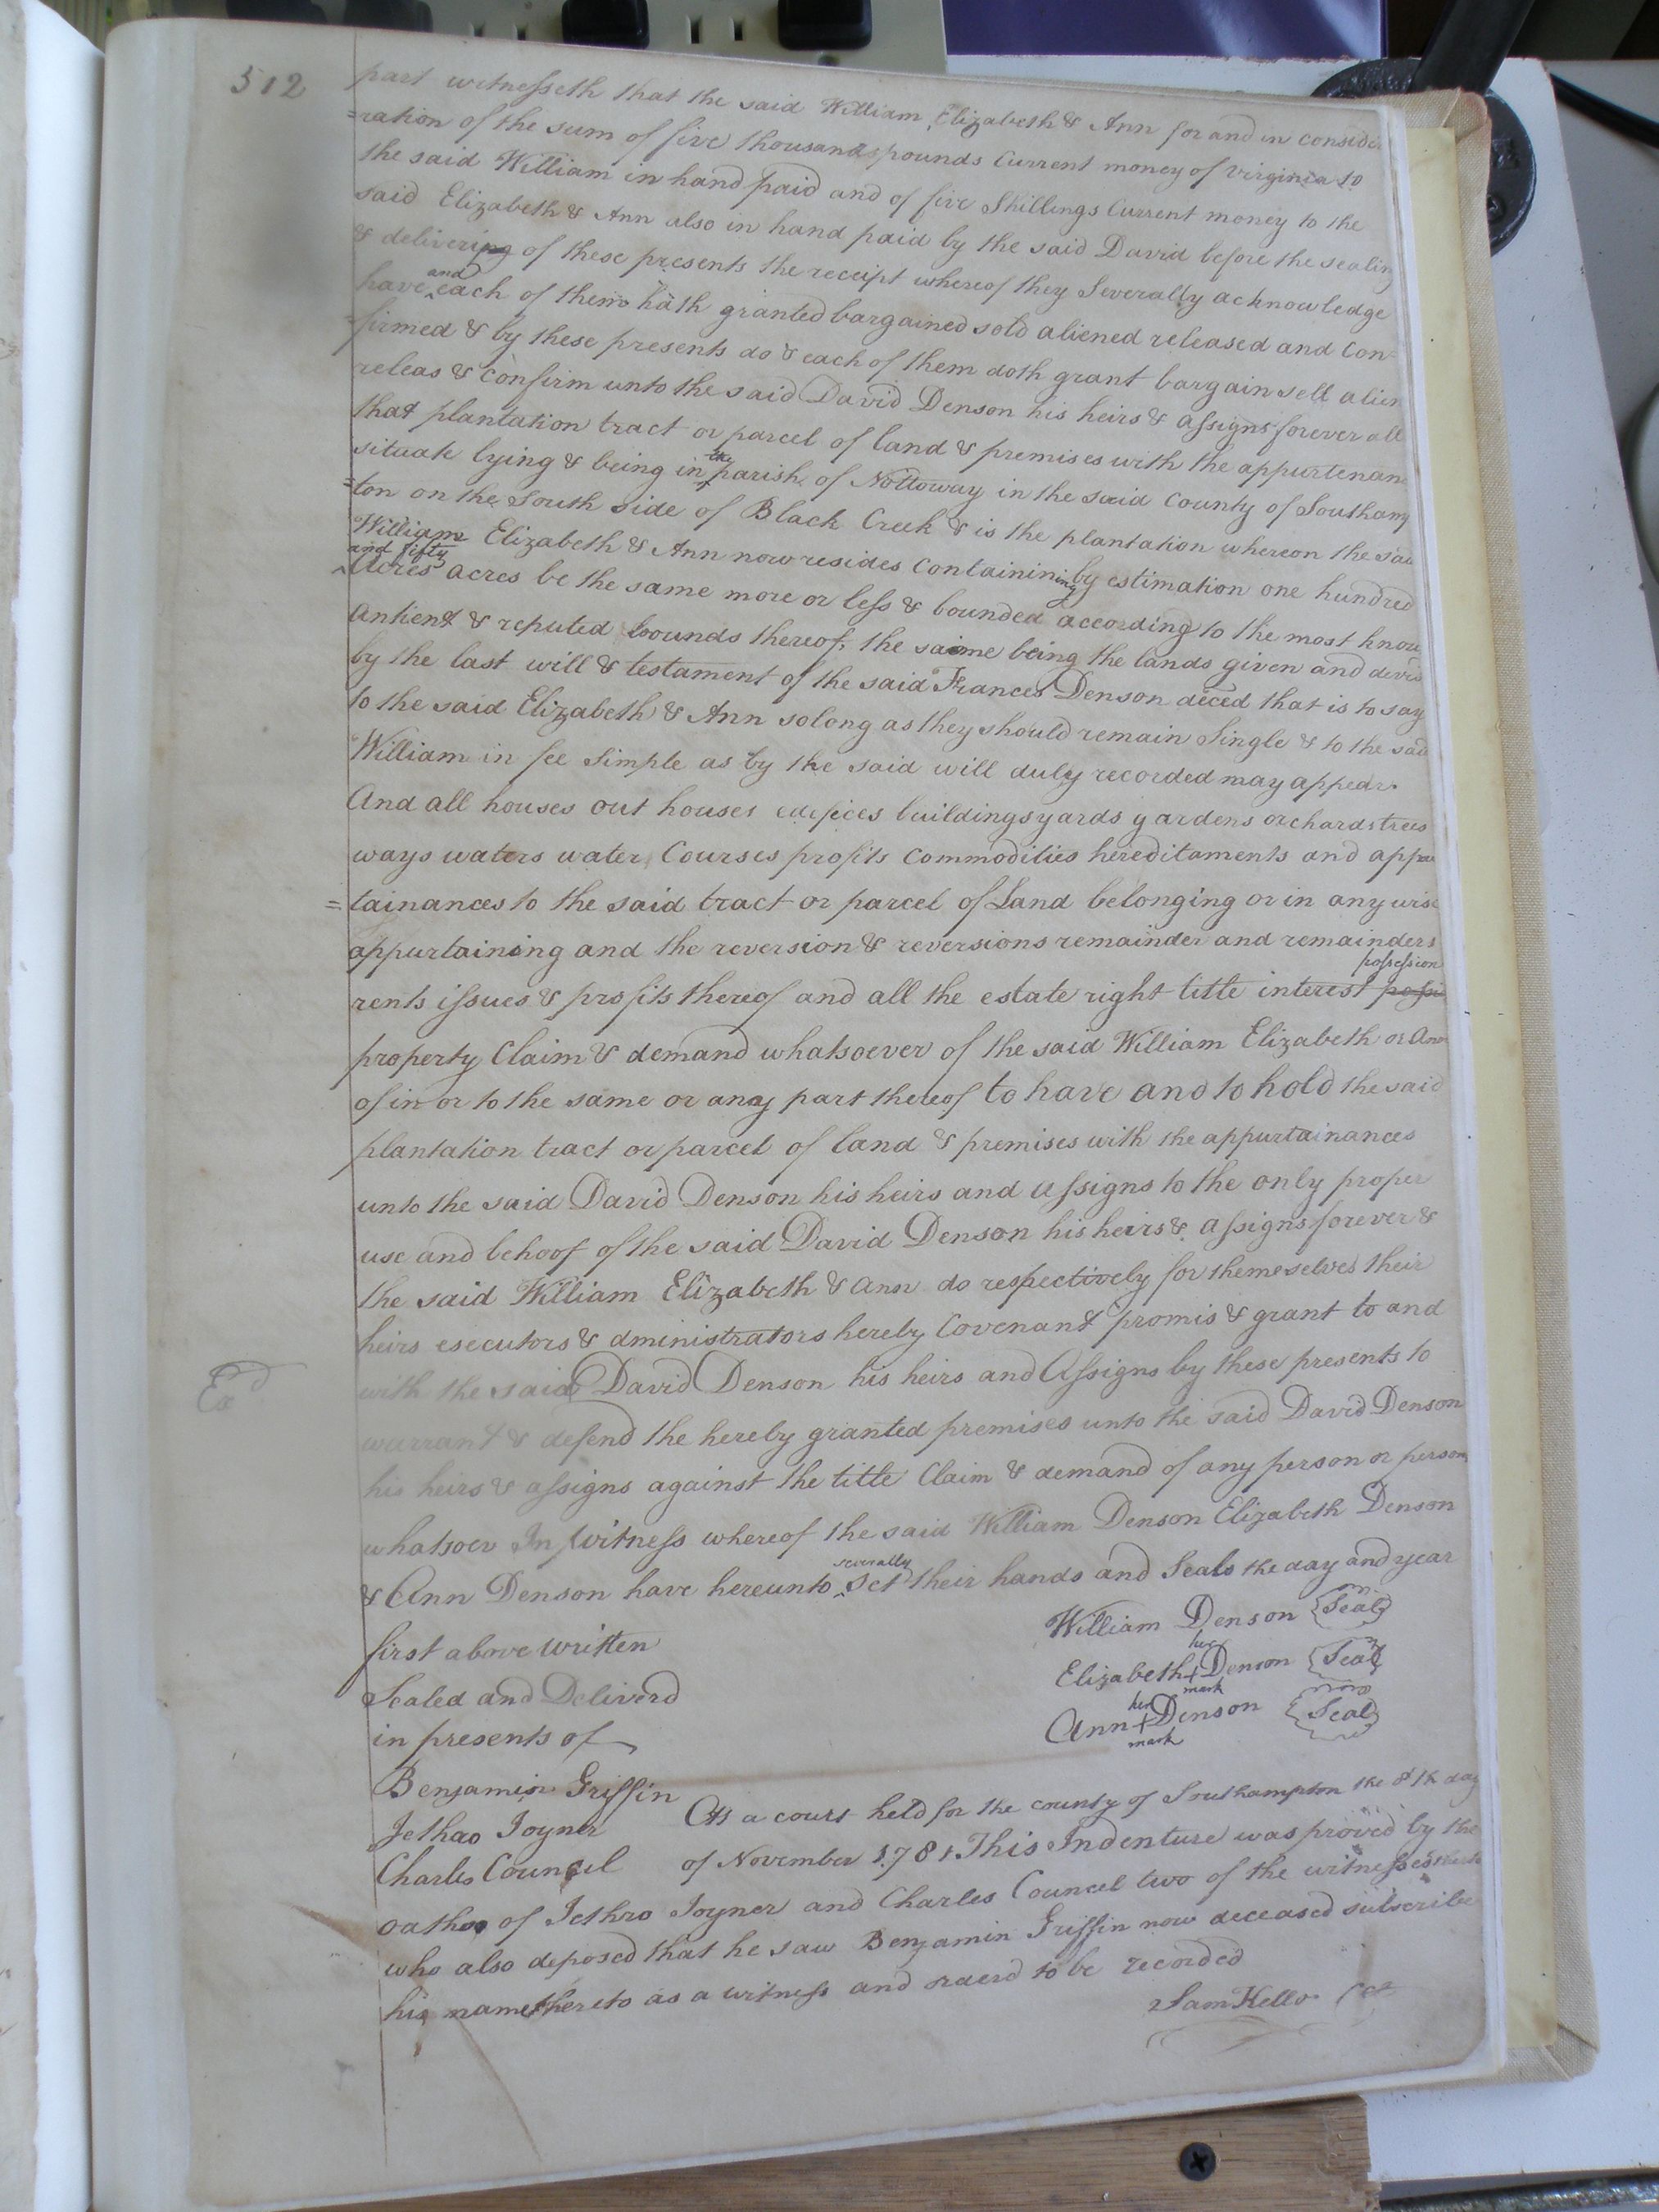 512
part witnesseth that the said William Elizabeth & Ann for and in conside
=ration of the sum of five thousand pounds Current money of Virginia to
the said William in hand paid and of five Shillings Current money to the
said Elizabeth & Ann also in hand paid by the said David before the sealing
& delivering of these presents the receipt whereof they Severally acknowledge
have and each of them hath granted bargained sold aliened released and Con=
=firmed & by these presents do & each of them doth grant bargain sell alien
releas & confirm unto the said David Denson his heirs & assigns forever all
that plantation tract or parcel of land & premises with the appurtenan
situate lying & being in the parish of Nottoway in the said County of Southamp
=ton on the South side of Black Creek & is the plantation whereon the said
William Elizabeth & Ann now resides Containining by estimation one hundred
and fifty
Acres acres be the same more or less & bounded according to the most known
Antient & reputed bounds thereof, the saime being the lands given and devis
by the last will & testament of the said Frances Denson deced that is to say
to the said Elizabeth & Ann so long as they should remain Single & to the said
William in fee Simple as by the said will duly recorded may appear.
And all houses out houses edefices buildings yards gardens orchards trees
ways waters water Courses profits Commodities hereditaments and appur
=tainances to the said tract or parcel of Land belonging or in any wise
appurtaining and the reversion & reversions remainder and remainders
possession
rents issues & profits thereof and all the estate right title interest possi
property Claim & demand whatsoever of the said William Elizabeth or Ann
of in or to the same or any part thereof to have and to hold the said
plantation tract or parcel of land & premises with the appurtainances
unto the said David Denson his heirs and assigns to the only proper
use and behoof of the said David Denson his heirs & assigns forever &
the said William Elizabeth & Ann do respectively for themeselves their
heirs esecutors & dministrators hereby Covenant promis & grant to and
with the said David Denson his heirs and Assigns by these presents to
Exd
warrant & defend the hereby granted premises unto the said David Denson
his heirs & assigns against the title Claim & demand of any person or persons
whatsoev In Witness whereof the said William Denson Elizabeth Denson
& Ann Denson have hereunto severally set their hands and Seals the day and year
first above written
William Denson Seal
Sealed and Deliverd
Elizabeth her + mark Denson Seal
in presents of
Ann her + mark Denson Seal
Benjamin Griffin
Jethao Joyner
Charles Council
At a court held for the county of Southampton the 8th day
of November 1781 This Indenture was proved by the
oaths of Jethro Joyner and Charles Councel two of the witnesses thereto
who also deposed that he saw Benjamin Griffin now deceased subscribe
his name thereto as a witness and ordered to be recorded
Sam Kello CC